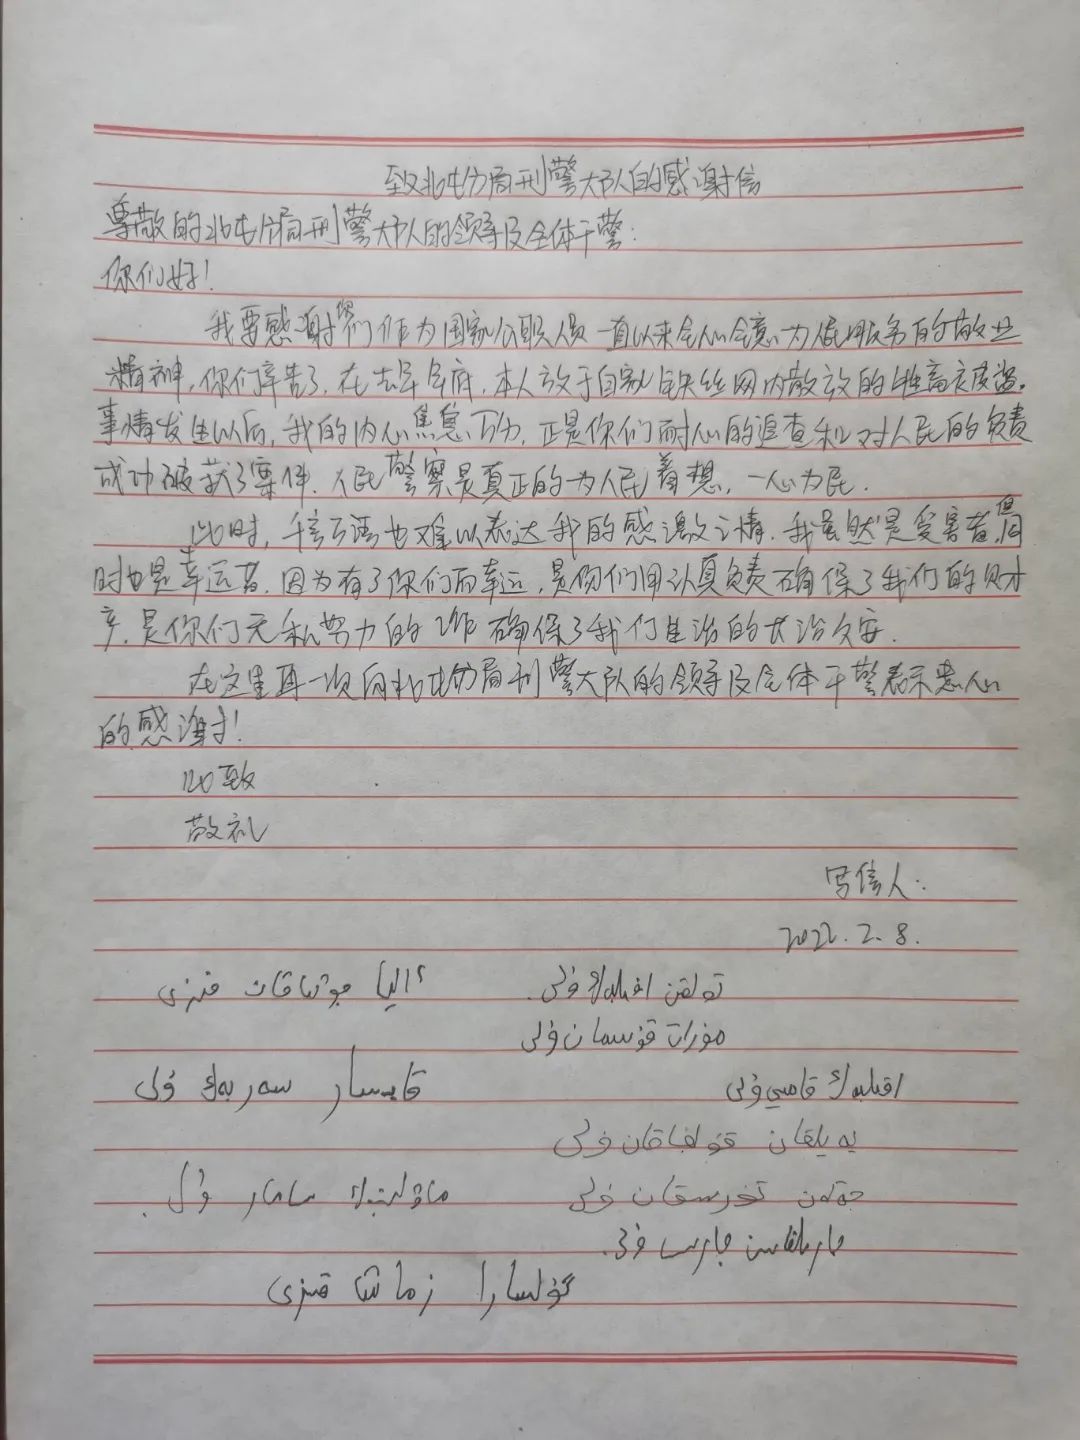 致北屯分局刑警大队的感谢信
尊敬的北屯分局刑警大队的领导及全体干警:
你们好!
我要感谢你们作为国家公职人员一直以来全心全意为人民服务的敬业
精神,你们辛苦了.在去年年底,本人放于自家铁丝网内散放的牲畜被盗。
事情发生以后,我的内心焦急万分,正是你们耐心的追查和对人民的负责
成功破获了案件.人民警察是真正的为人民着想,一心为民.
此时,千言万语也难以表达我的感激之情.我虽然是受害者,但同
时也是幸运者.因为有了你们而幸运,是你们用认真负责确保了我们的财
产.是你们无私努力的工作确保了我们生活的长治久安.
在这里再一次向北屯分局刑警大队的领导及全体干警表示衷心
的感谢!
此致
敬礼
写信人:
2022.2.8.
قىزى
مۇرات قۇسمان ۇلى
قايسار سەربەك ۇلى
اقىلبەك ۇلى
ۇلى
تۇرسىقان ۇلى
ۇلى
گۇلسارا قىزى